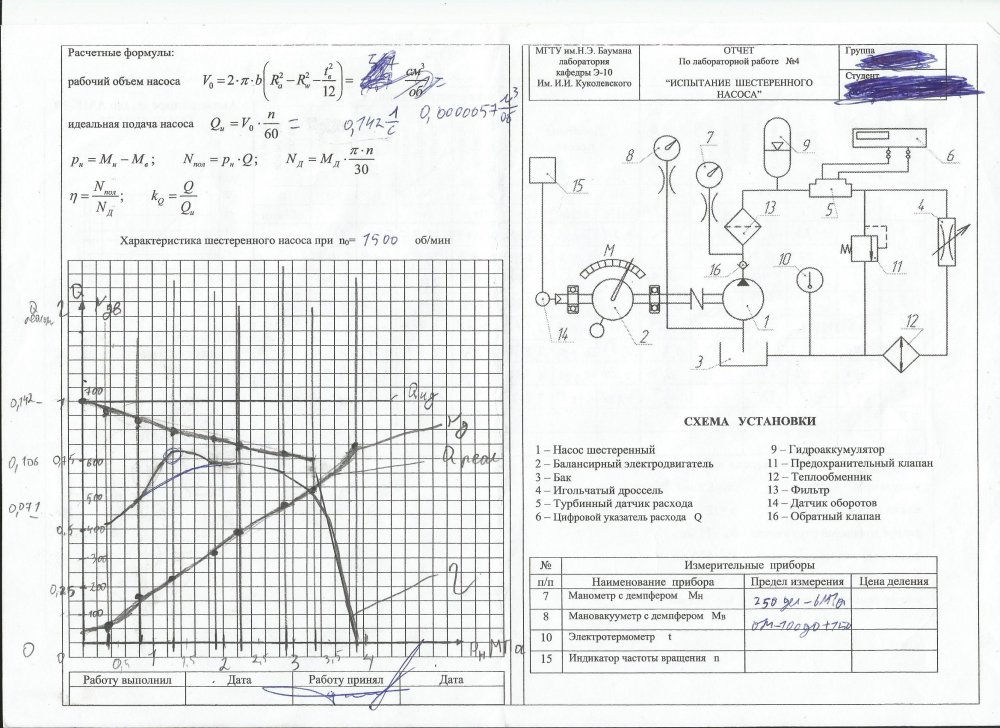 Расчетные формулы:
рабочий объем насоса V₀ = 2·π·b(Rₐ² − R_w² − t_в²/12) = см³/об
0,0000057 м³/об
идеальная подача насоса Q_и = V₀ · n/60 = 0,142 л/с
p_н = M_н − M_в ; N_пол = p_н · Q; N_Д = M_Д · π·n/30
η = N_пол/N_Д ; k_Q = Q/Q_и
Характеристика шестеренного насоса при n₀= 1500 об/мин
Q
N дв
1
700
0,142
Q ид
Nд
0,106
600
Q реал
0,071
500
0,5
400
300
0,25
200
100
η
0
0
0,5 1 1,5 2 2,5 3 3,5 4 Pн МПа
Работу выполнил Дата Работу принял Дата
МГТУ им.Н.Э. Баумана
лаборатория
кафедры Э-10
Им. И.И. Куколевского
ОТЧЕТ
По лабораторной работе №4
"ИСПЫТАНИЕ ШЕСТЕРЕННОГО
НАСОСА"
Группа
Студент
7
8
9
6
15
13
5
4
M
16
10
11
14
2
1
3
12
СХЕМА УСТАНОВКИ
1 – Насос шестеренный
2 – Балансирный электродвигатель
3 – Бак
4 – Игольчатый дроссель
5 – Турбинный датчик расхода
6 – Цифровой указатель расхода Q
9 – Гидроаккумулятор
11 – Предохранительный клапан
12 – Теплообменник
13 – Фильтр
14 – Датчик оборотов
16 – Обратный клапан
№ Измерительные приборы
п/п Наименование прибора Предел измерения Цена деления
7 Манометр с демпфером Мн 250 дел – 6МПа
8 Мановакууметр с демпфером Мв
10 Электротермометр t
15 Индикатор частоты вращения n